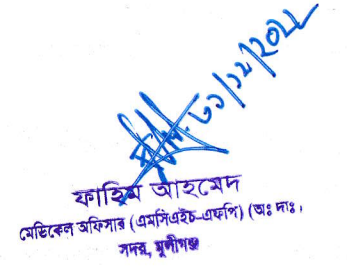 ৩১/১২/২০২১
ফাহিম আহমেদ
মেডিকেল অফিসার (এমসিএইচ-এফপি) (অঃ দাঃ,
সদর, মুন্সীগঞ্জ